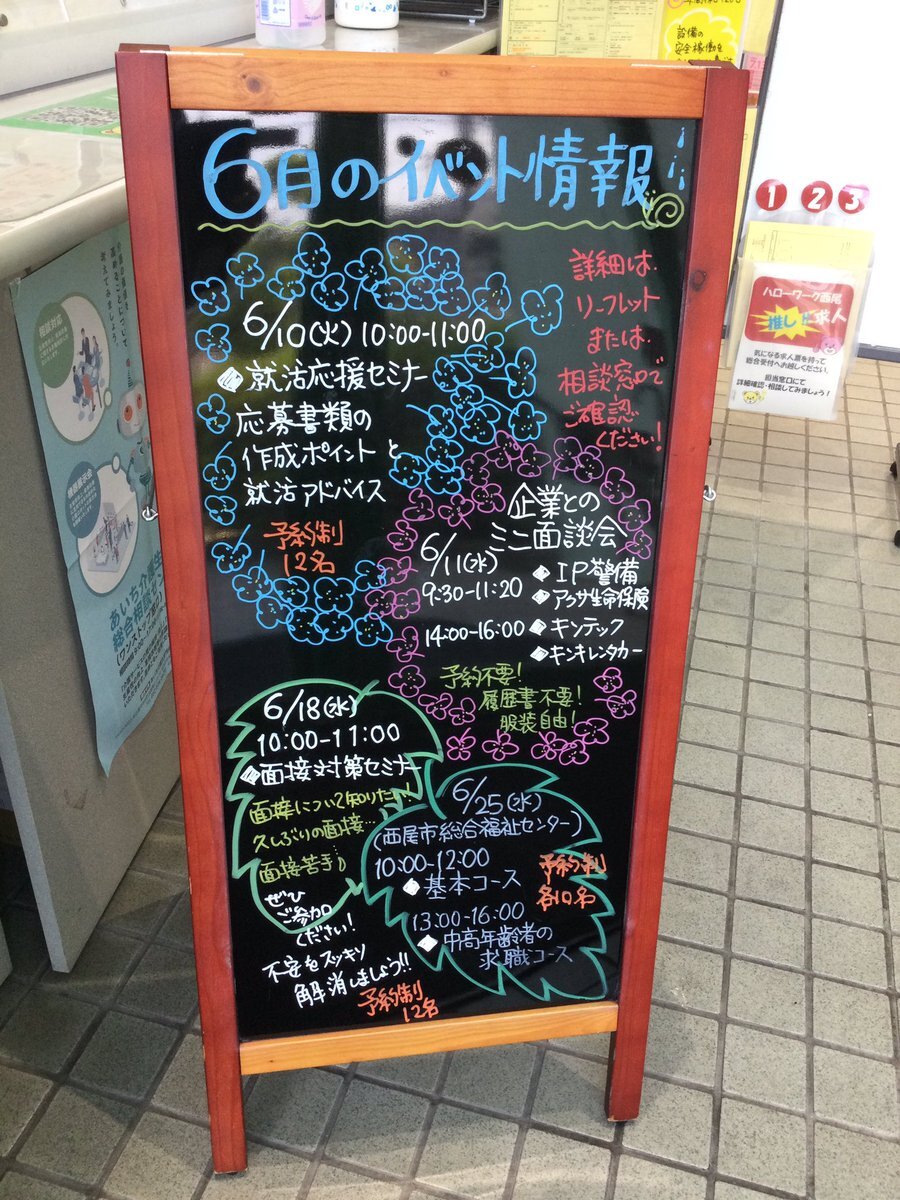 6月のイベント情報
詳細は、
リーフレット
または、
相談窓口で
ご確認
ください!
6/10(火) 10:00-11:00
就活応援セミナー
応募書類の
作成ポイントと
就活アドバイス
予約制
12名
企業との
ミニ面談会
6/11(水)
9:30-11:20
IP警備
アクサ生命保険
14:00-16:00
キンテック
キンキレンタカー
予約不要!
履歴書不要!
服装自由!
6/18(水)
10:00-11:00
面接対策セミナー
面接について知りたい!
久しぶりの面接…
面接苦手
ぜひ
ご参加
ください!
不安をスッキリ
解消しましょう!!
予約制
12名
6/25(水)
(西尾市総合福祉センター)
10:00-12:00
基本コース
13:00-16:00
中高年齢者の
求職コース
予約制
各10名
設備の
安全稼働を
1 2 3
ハローワーク西尾
推し求人
気になる求人票を持って
総合受付へお越しください。
担当窓口にて
詳細確認・相談してみましょう!
相談対応